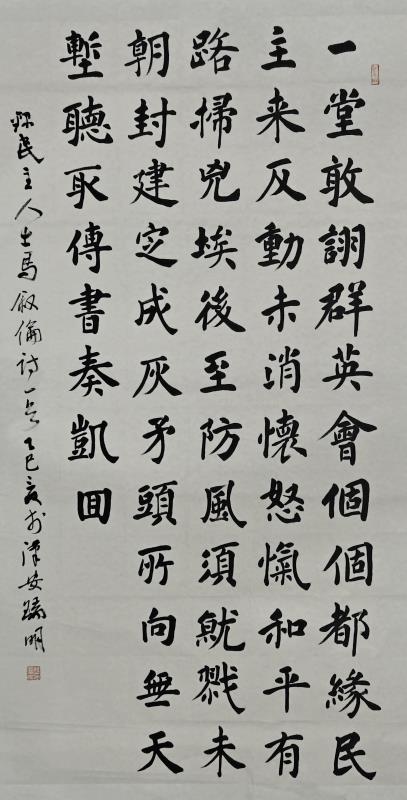 一堂敢詡群英會個個都緣民
主来反動未消懷怒愾和平有
路掃兇埃後至防風須就戮未
朝封建定成灰矛頭所向無天
塹聽取傳書奏凱回
民主人士馬叙倫詩一首乙巳夏於漢安明